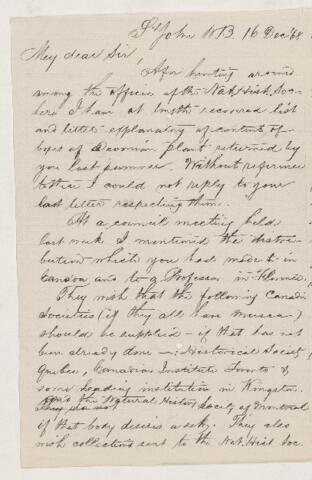 St John N.B. 16 Dec '68
My dear Sir,
After hunting around
among the offices of the Nat. Hist. Soc.
here I have at length recovered list
and letter explanatory of contents of
boxes of Devonian plants returned by
you last summer. Without reference
to these I could not reply to your
last letter respecting them.
At a council meeting held
last week I mentioned the distri-
bution which you had made to in
London and to a Professor in
They wish that the following Canadn
Societies (if they all have museums)
should be supplied — if that has not
been already done —: Historical Society
Quebec, Canadian Institute Toronto &
some leading institution in Kingston.
and the Natural History Society of Montreal
They
if that body desires a set. They also
wish collections sent to the Nat. Hist. Soc.